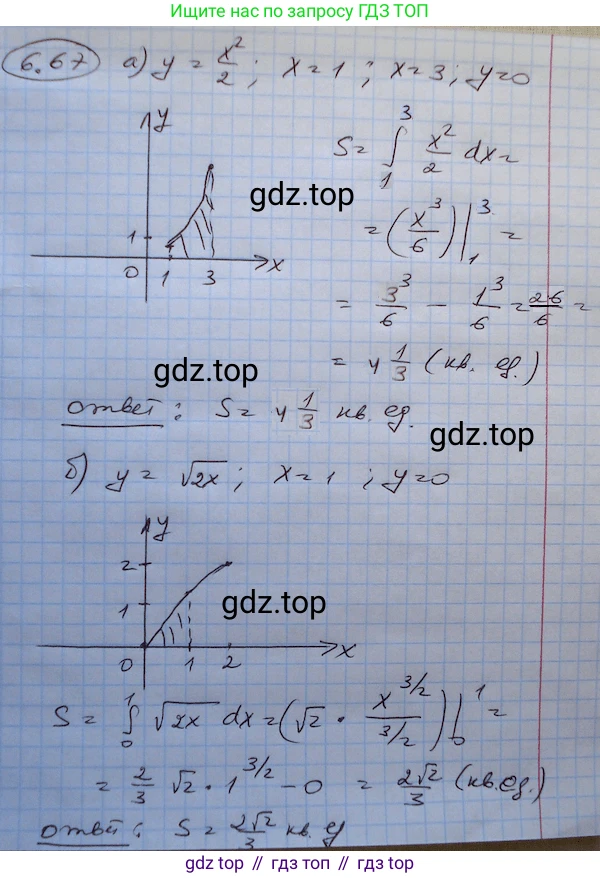 Ищите нас по запросу ГДЗ ТОП
6.67 а) y = x²/2; x=1; x=3; y=0
y
S = ∫₁³ x²/2 dx =
gdz.top
= (x³/6)|₁³ =
1
0 1 3 x
= 3³/6 - 1³/6 = 26/6 =
gdz.top
= 4 1/3 (кв. ед.)
ответ: S = 4 1/3 кв. ед.
gdz.top
б) y = √2x; x=1; y=0
y
2
1
gdz.top
0 1 2 x
S = ∫₀¹ √2x dx = (√2 · x^3/2 / 3/2)|₀¹ =
= 2/3 √2 · 1^3/2 - 0 = 2√2/3 (кв. ед.)
ответ: S = 2√2/3 кв. ед
gdz top // гдз топ // gdz top // гдз топ